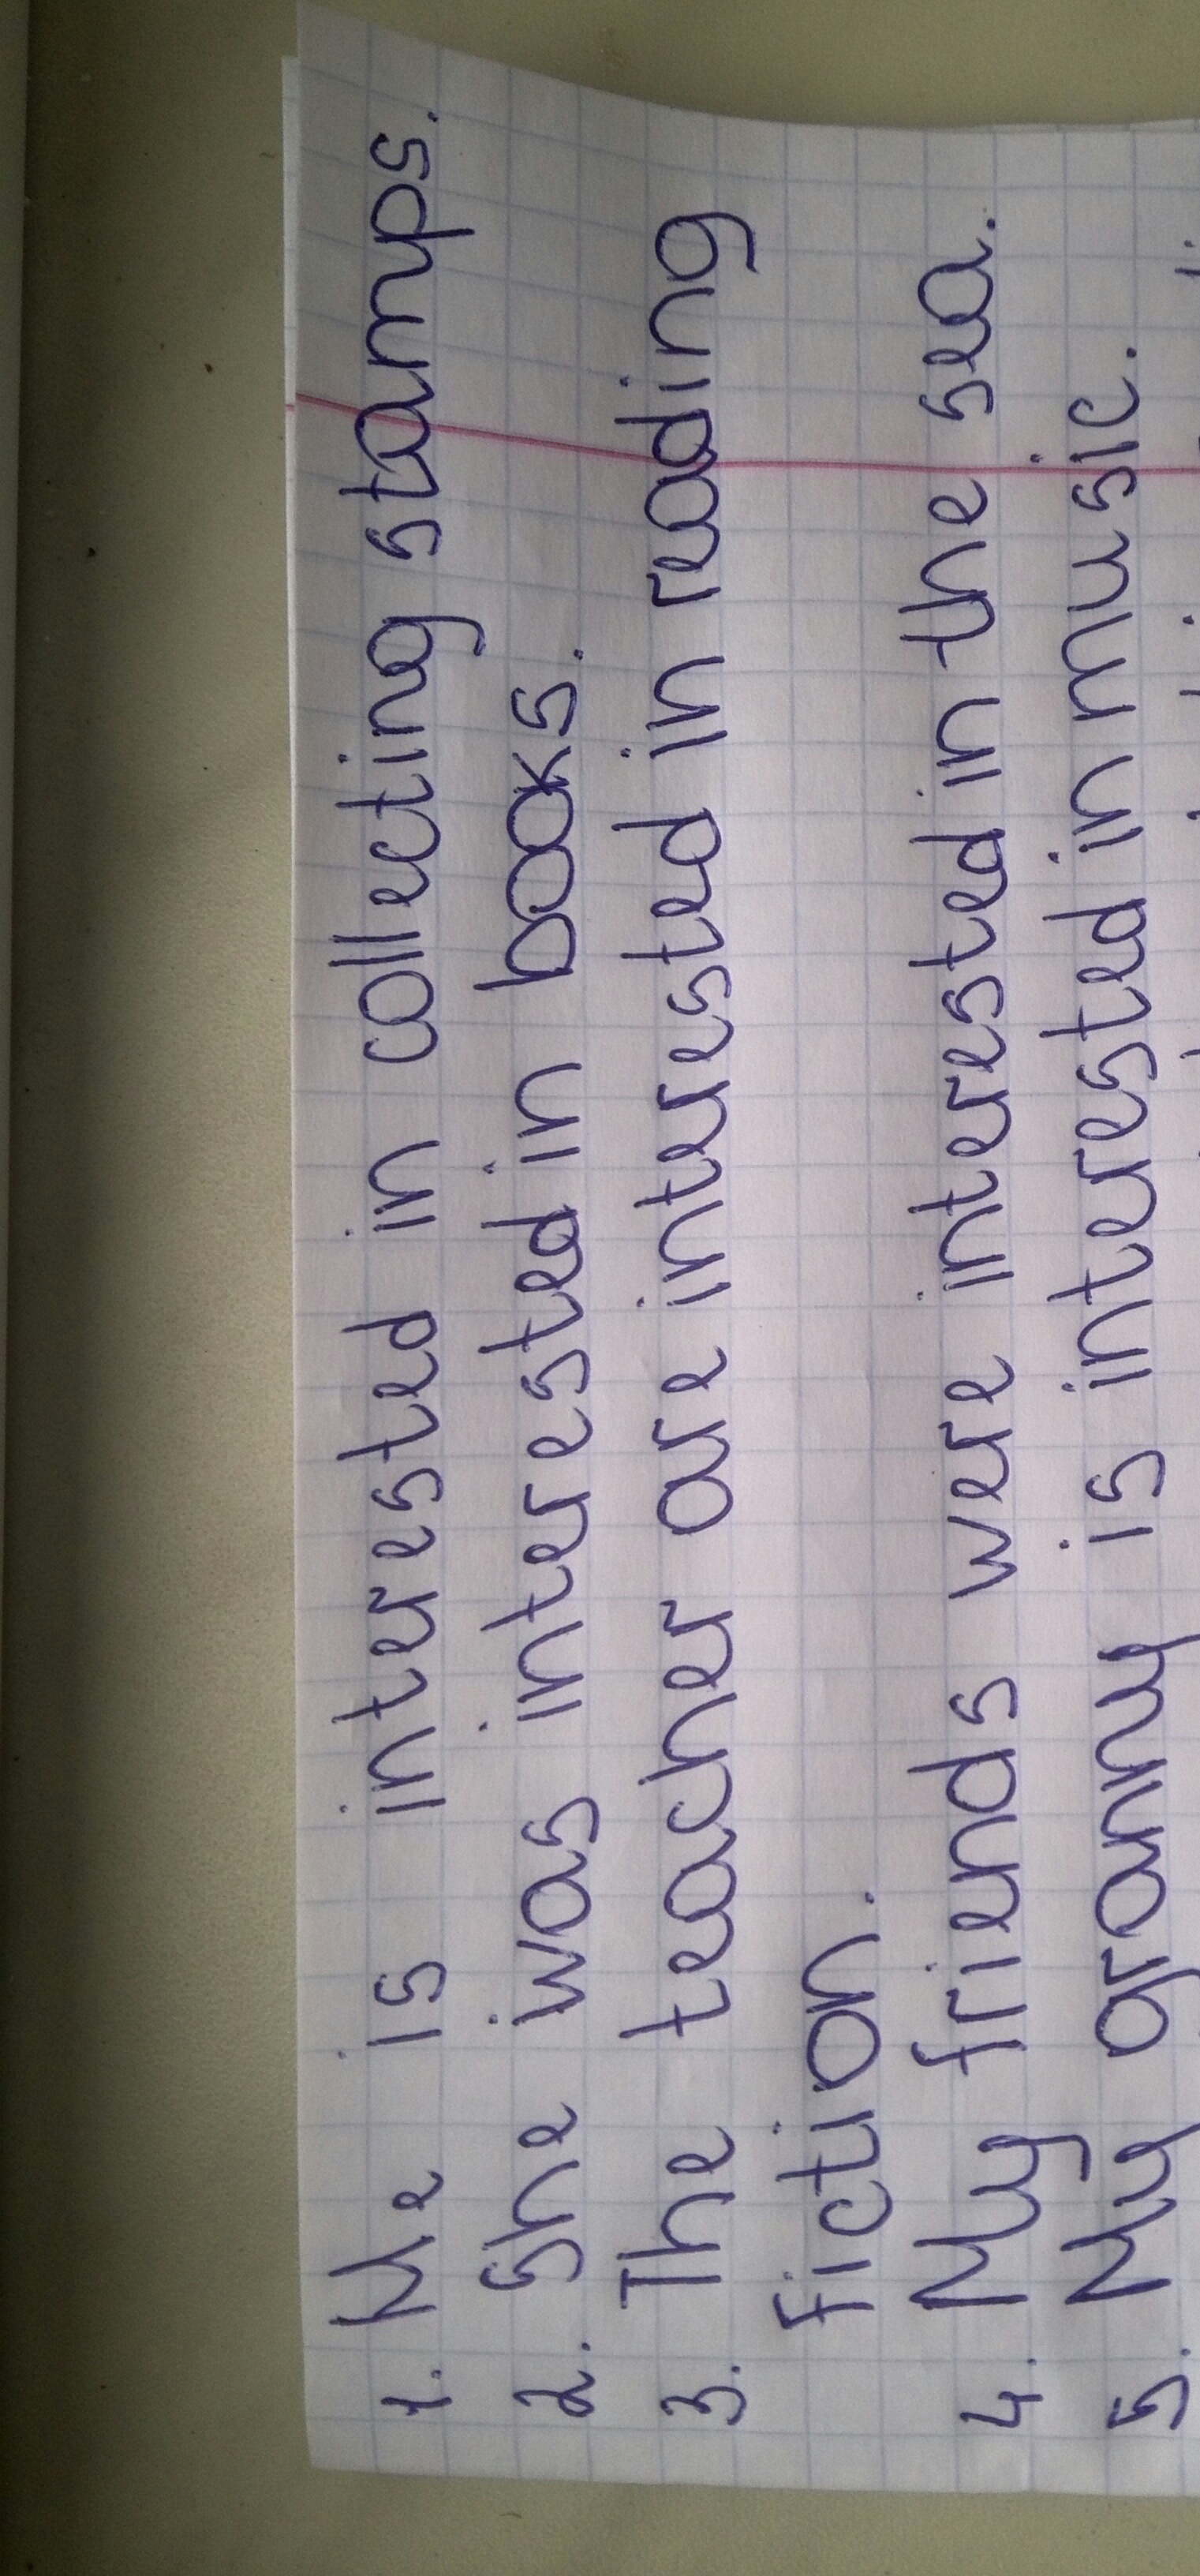 1. He is interested in collecting stamps.
2. She was interested in books.
3. The teacher are interested in reading
fiction.
4. My friends were interested in the sea.
5. My granny is interested in music.